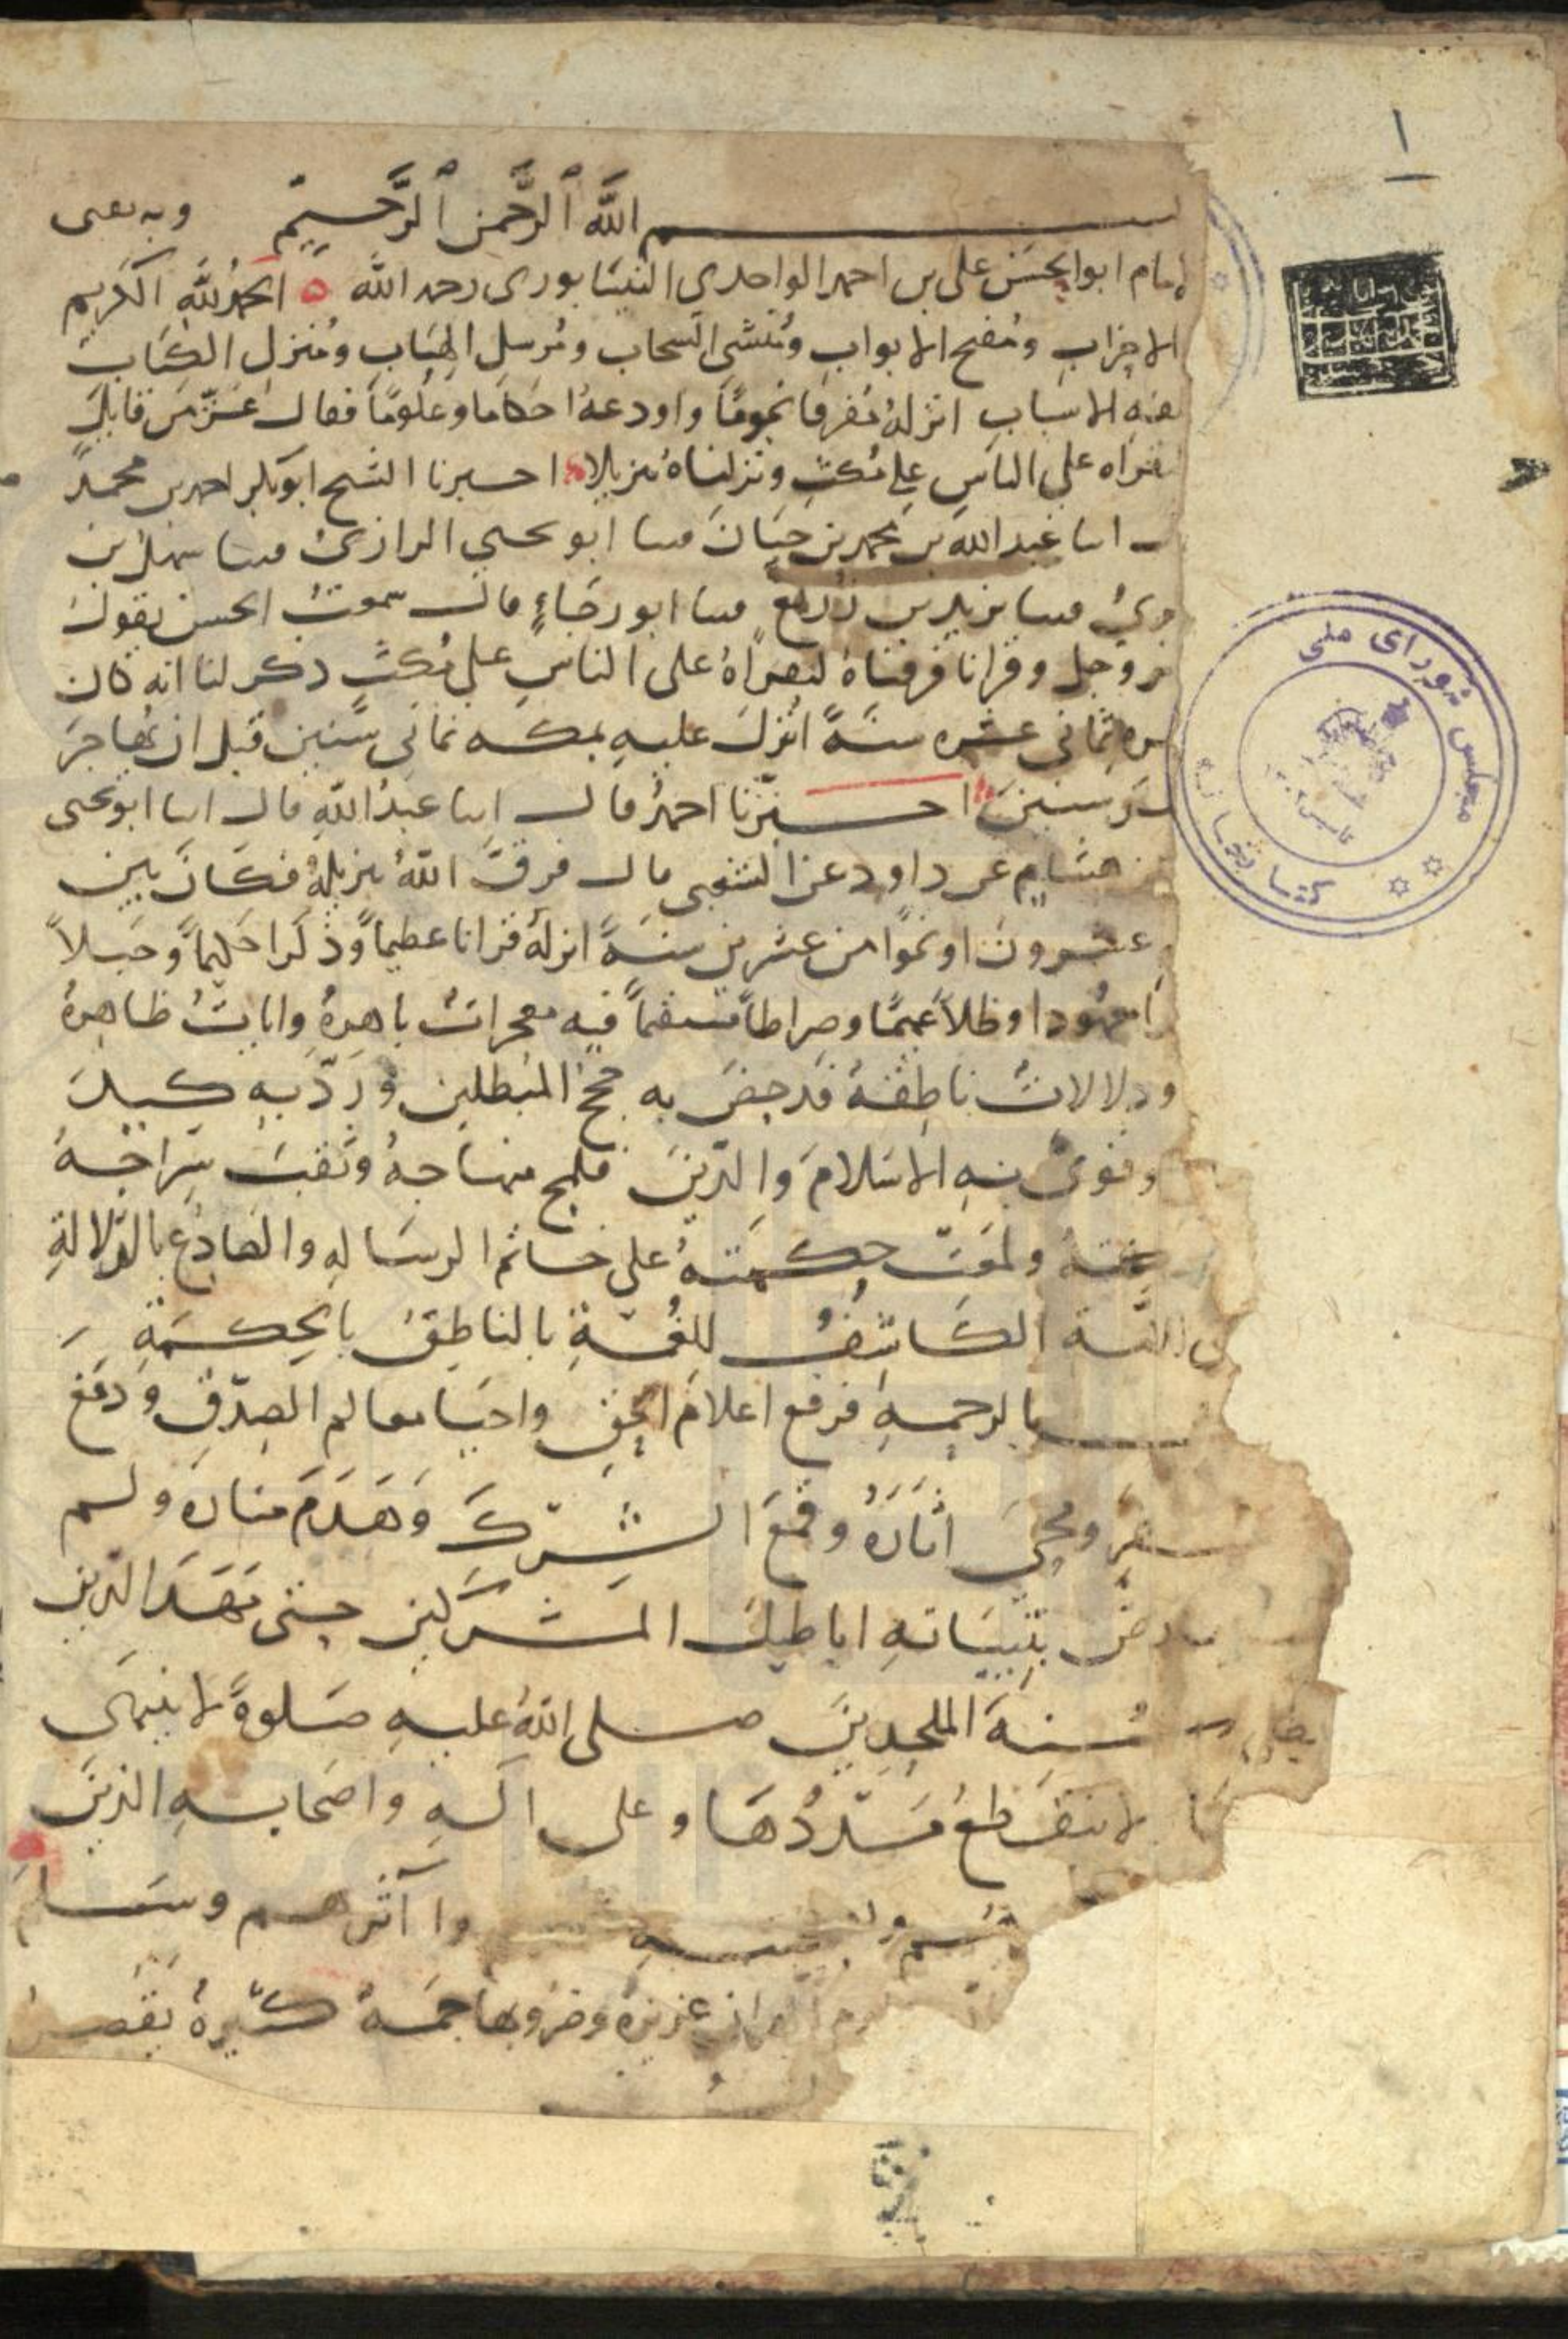 ١
بسم الله الرحمن الرحيم وبه ثقتي
لامام ابو الحسن علي بن احمد الواحدي النيسابوري رحمه الله ه الحمد لله الكريم
الاحزاب ومفتح الابواب ومنشئ السحاب ومرسل الهباب ومنزل الكتاب
الاسباب انزله مفرقا نجوما واودعه احكاما وعلوما فقال عز من قايل
لتقراه على الناس على مكث ونزلناه تنزيلا احبرنا الشيخ ابو بكر احمد بن محمد
انا عبد الله بن محمد بن حيان ثنا ابو يحيى الرازي ثنا سهل بن
ثنا يزيد بن زريع ثنا ابو رجاء قال سمعت الحسن يقول
عز وجل وقرانا فرقناه لتقراه على الناس على مكث ذكر لنا انه كان
ثماني عشره سنة انزل عليه بمكه ثماني سنين قبل ان يهاجر
سنين احبرنا احمد قال انا عبد الله قال انا ابو يحيى
هشام عن داود عن الشعبي قال فرق الله تنزيله فكان بين
عشرون او نحوا من عشرين سنة انزله قرانا عظيما وذكرا حكيما وحبلا
معهودا وظلا عميما وصراطا مستقيما فيه معجزات باهرة وايات ظاهرة
ودلالات ناطقة قد حض به حجج المبطلين ورد به كيد
وقوى به الاسلام والدين فلمج منهاجه وثقب سراجه
ولمعت حكمته على خاتم الرسالة والصادع بالدلالة
الكاشف للغمة بالناطق بالحكمة
بالرحمة فرفع اعلام الحق واحيا معالم الصدق ودمغ
ومحى اثاره وقمع الشرك وهدم مناره ولم
بتبيانه اباطيل المشركين حتى مهد الدين
الملحدين صلى الله عليه صلوة لا ينتهي
لا ينقطع مددها وعلى اله واصحابه الذين
وسلم
غزيرة وضروبها جمة كثيرة يقصر
مجلس شورای ملی
کتابخانه